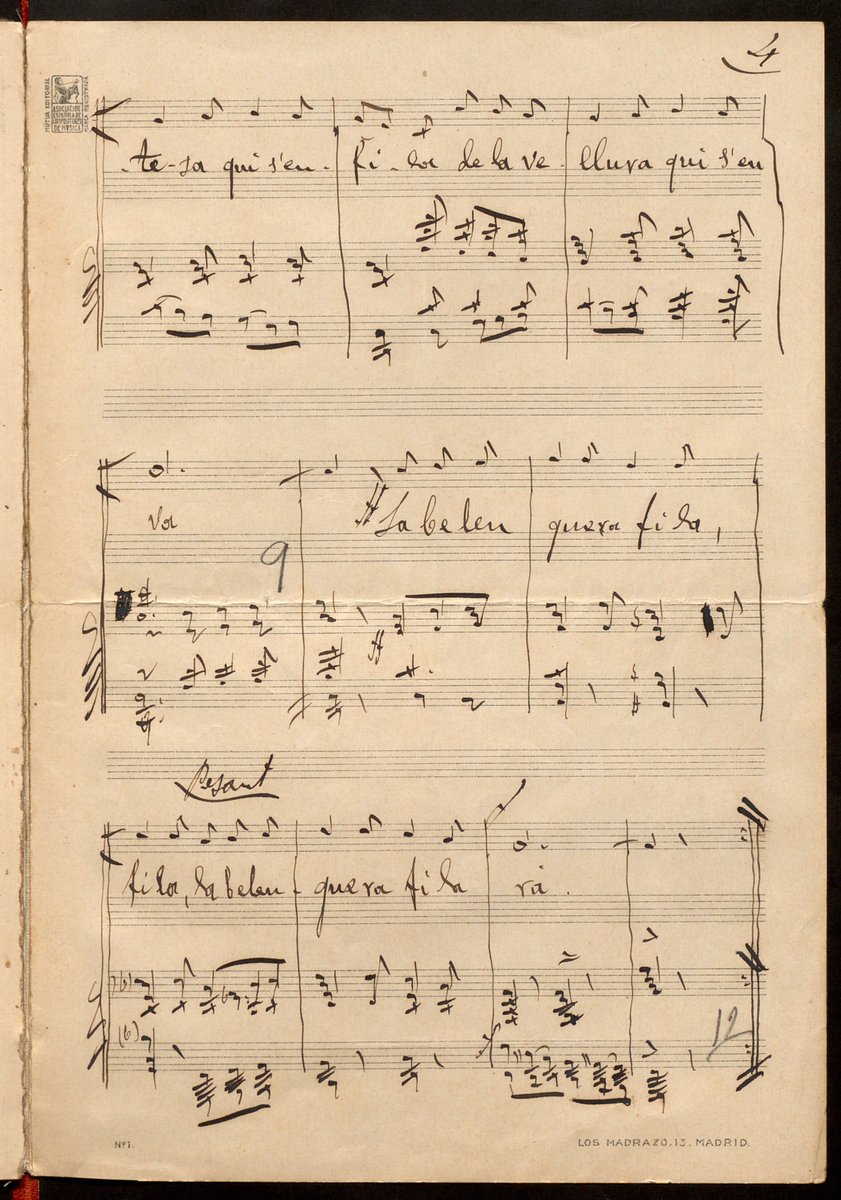 4
MUTUA EDITORIAL
ASOCIACIÓN
ESPAÑOLA DE
COMPOSITORES
DE MÚSICA
MARCA REGISTRADA
-te-sa qui s'en- fi-la de la ve- llura qui s'en
va La belen quera fila,
9
Pesant
fila, la belen- quera fila rá.
(b)
(b)
12
Nº1.
LOS MADRAZO, 13. MADRID.